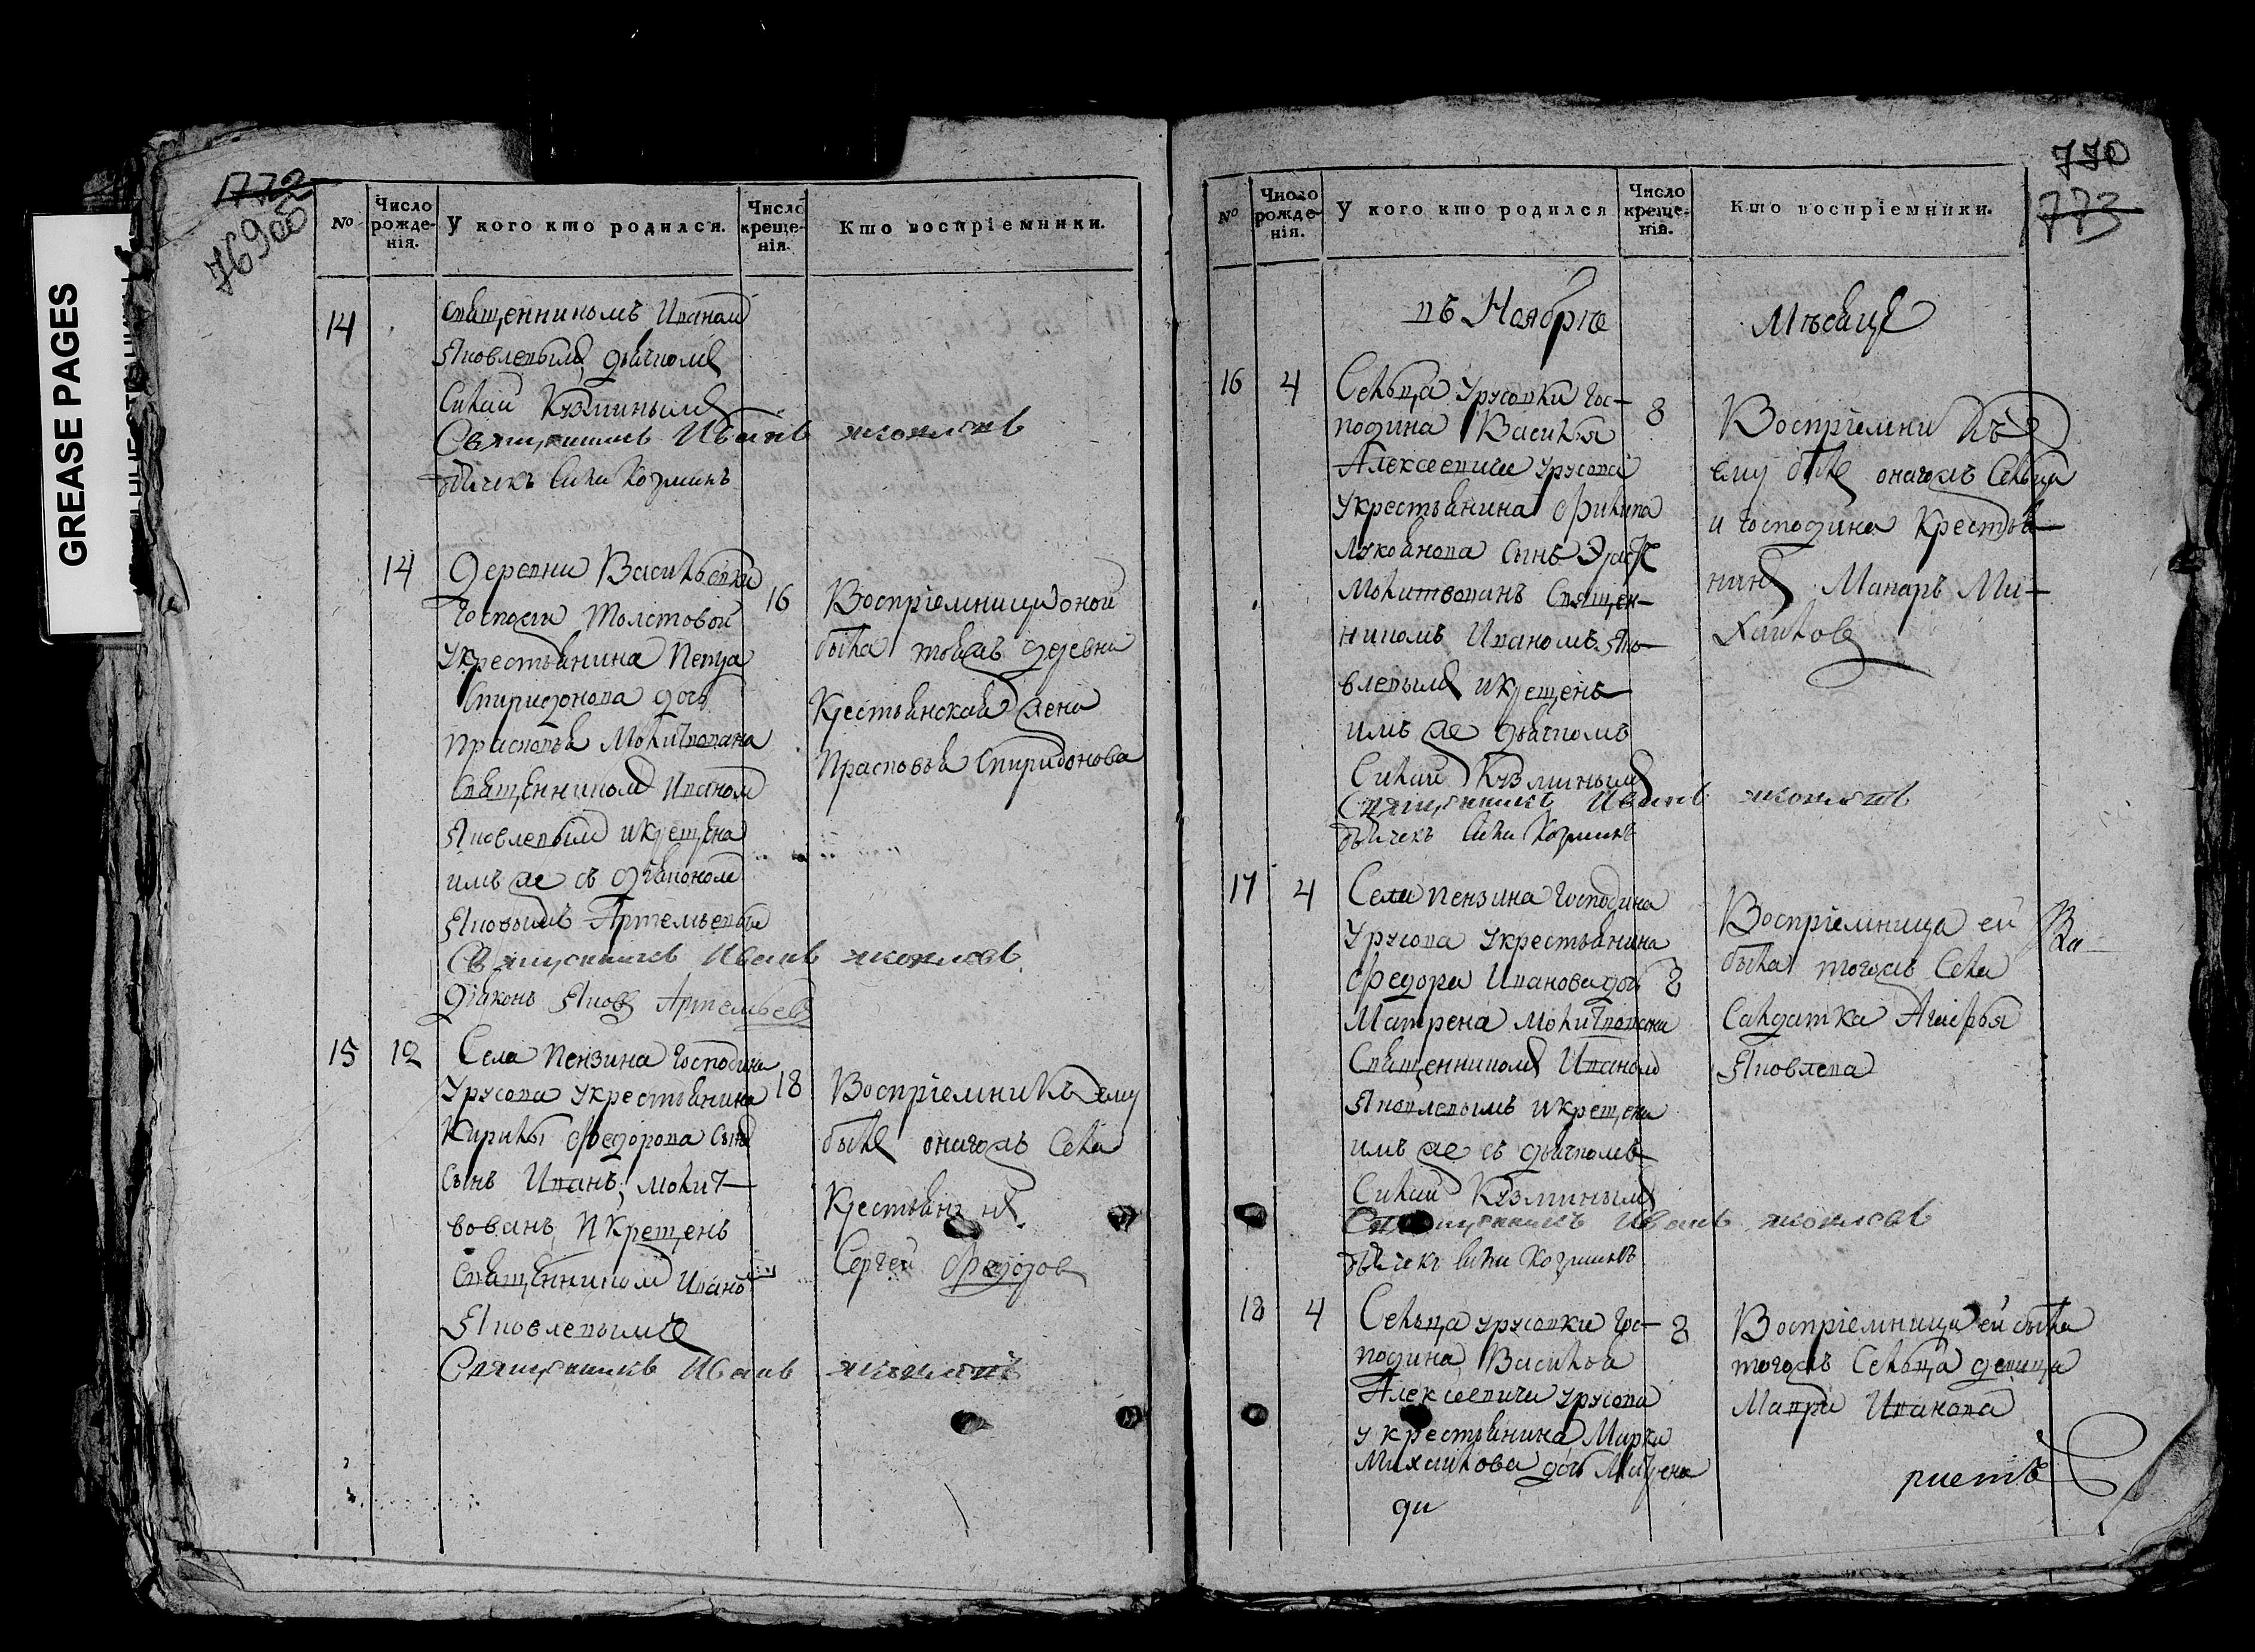 GREASE PAGES
1772
769об
№ Число рожденія. У кого кто родился. Число крещенія. Кто воспріемники.
14
священникомъ Иваном
Яковлевымъ дьячкомъ
Силай Кузминымъ
Священникъ Иванъ Яковлевъ
дьячекъ Сила Козминъ
14
Деревни Васильевки
Госпожи Толстовой
укрестьянина Петра
Спиридонова дочь
Прасковья молитвована
священником Иваном
Яковлевым икрещена
имъ же съ дьяконом
Яковымъ Артемьевым
Священникъ Иванъ Яковлевъ
Дьяконъ Яковъ Артемьевъ
16
Воспріемницею оной
была тояжъ деревни
Крестьянская жена
Прасковья Спиридонова
15 12
Села Пензина господина
Урусова укрестьянина
Кирилы Федорова сынъ
сынъ Иванъ, молит-
вованъ И Крещенъ
священником Ивано
Яковлевымъ
Священникъ Иванъ Яковлевъ
18
ВоспріемниКъ ему
былъ онагожъ Села
Крестьянинъ
Сергей Федоров
770
773
№ Число рожденія. У кого кто родился Число крещенія. Кто воспріемники.
въ Ноябрѣ Мѣсяце
16 4
Сельца Урусовки гос-
подина Василья
Алексеевича Урусова
укрестьянина Филипа
Лукоянова сынъ
молитвованъ священ-
никомъ Иваномъ Яко-
влевымъ икрещенъ
имъ же дьячкомъ
Силай Кузминымъ
Священникъ Иванъ Яковлевъ
дьячекъ Сила Козминъ
8
ВоспріемниКъ
ему былъ онагожъ Сельца
и господина Крестья-
нинъ Макаръ Ми-
хайлов
17 4
Села Пензина господина
Урусова укрестьянина
Федора Иванова дочь
Матрена молитвована
священникомъ Иваном
Яковлевымъ икрещена
имъ же съ дьячкомъ
Силай Кузминымъ
Священникъ Иванъ Яковлевъ
дьячекъ Сила Козминъ
8
Воспріемница ей
была тогожъ Села
Салдатка Агафья
Яковлева
18 4
Сельца Урусовки гос-
подина Василья
Алексеевича Урусова
у крестьянина Марка
Михайлова дочь
8
Воспріемница ей была
тогожъ Сельца девица
Мавра Иванова